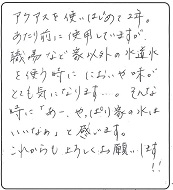 アクアスを使いはじめて2年。
あたり前に使用していますが、
職場など家以外の水道水
を使う時に においや味が
とても気になります…。そんな
時に「あー、やっぱり家の水は
いいなぁ」と感います。
これからもよろしくお願いします
!!